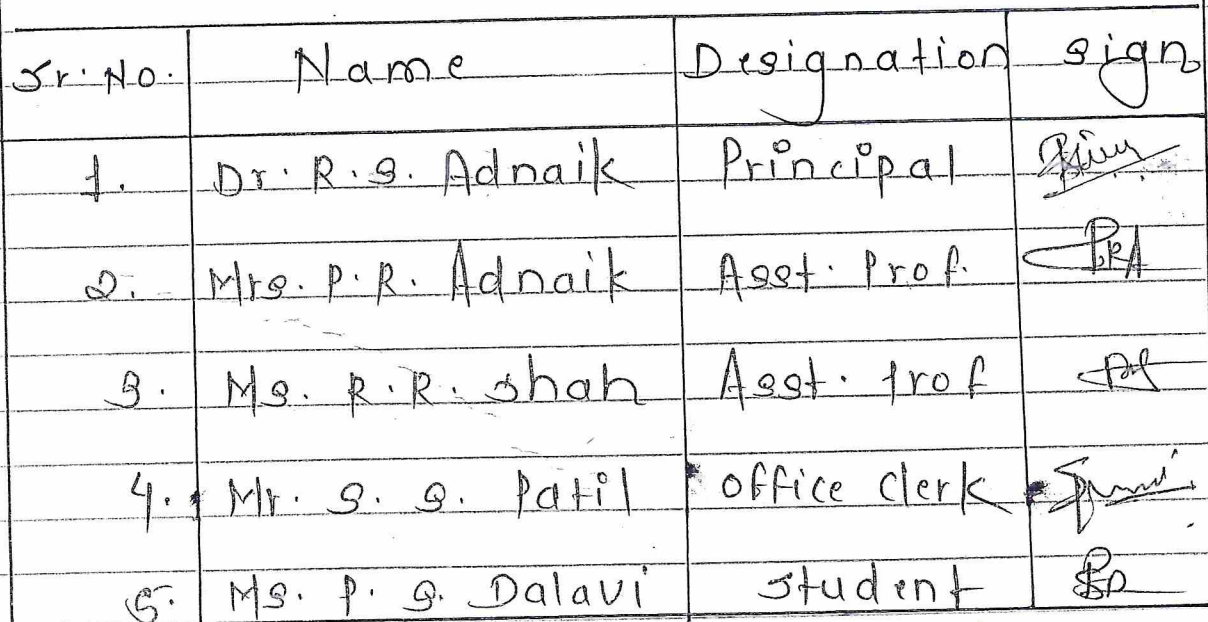 Sr. No. Name Designation sign
1. Dr. R. S. Adnaik Principal
2. Mrs. P. R. Adnaik Asst. Prof. PRA
3. Ms. R. R. shah Asst. Prof
4. Mr. S. S. Patil office clerk
5. Ms. P. S. Dalavi student